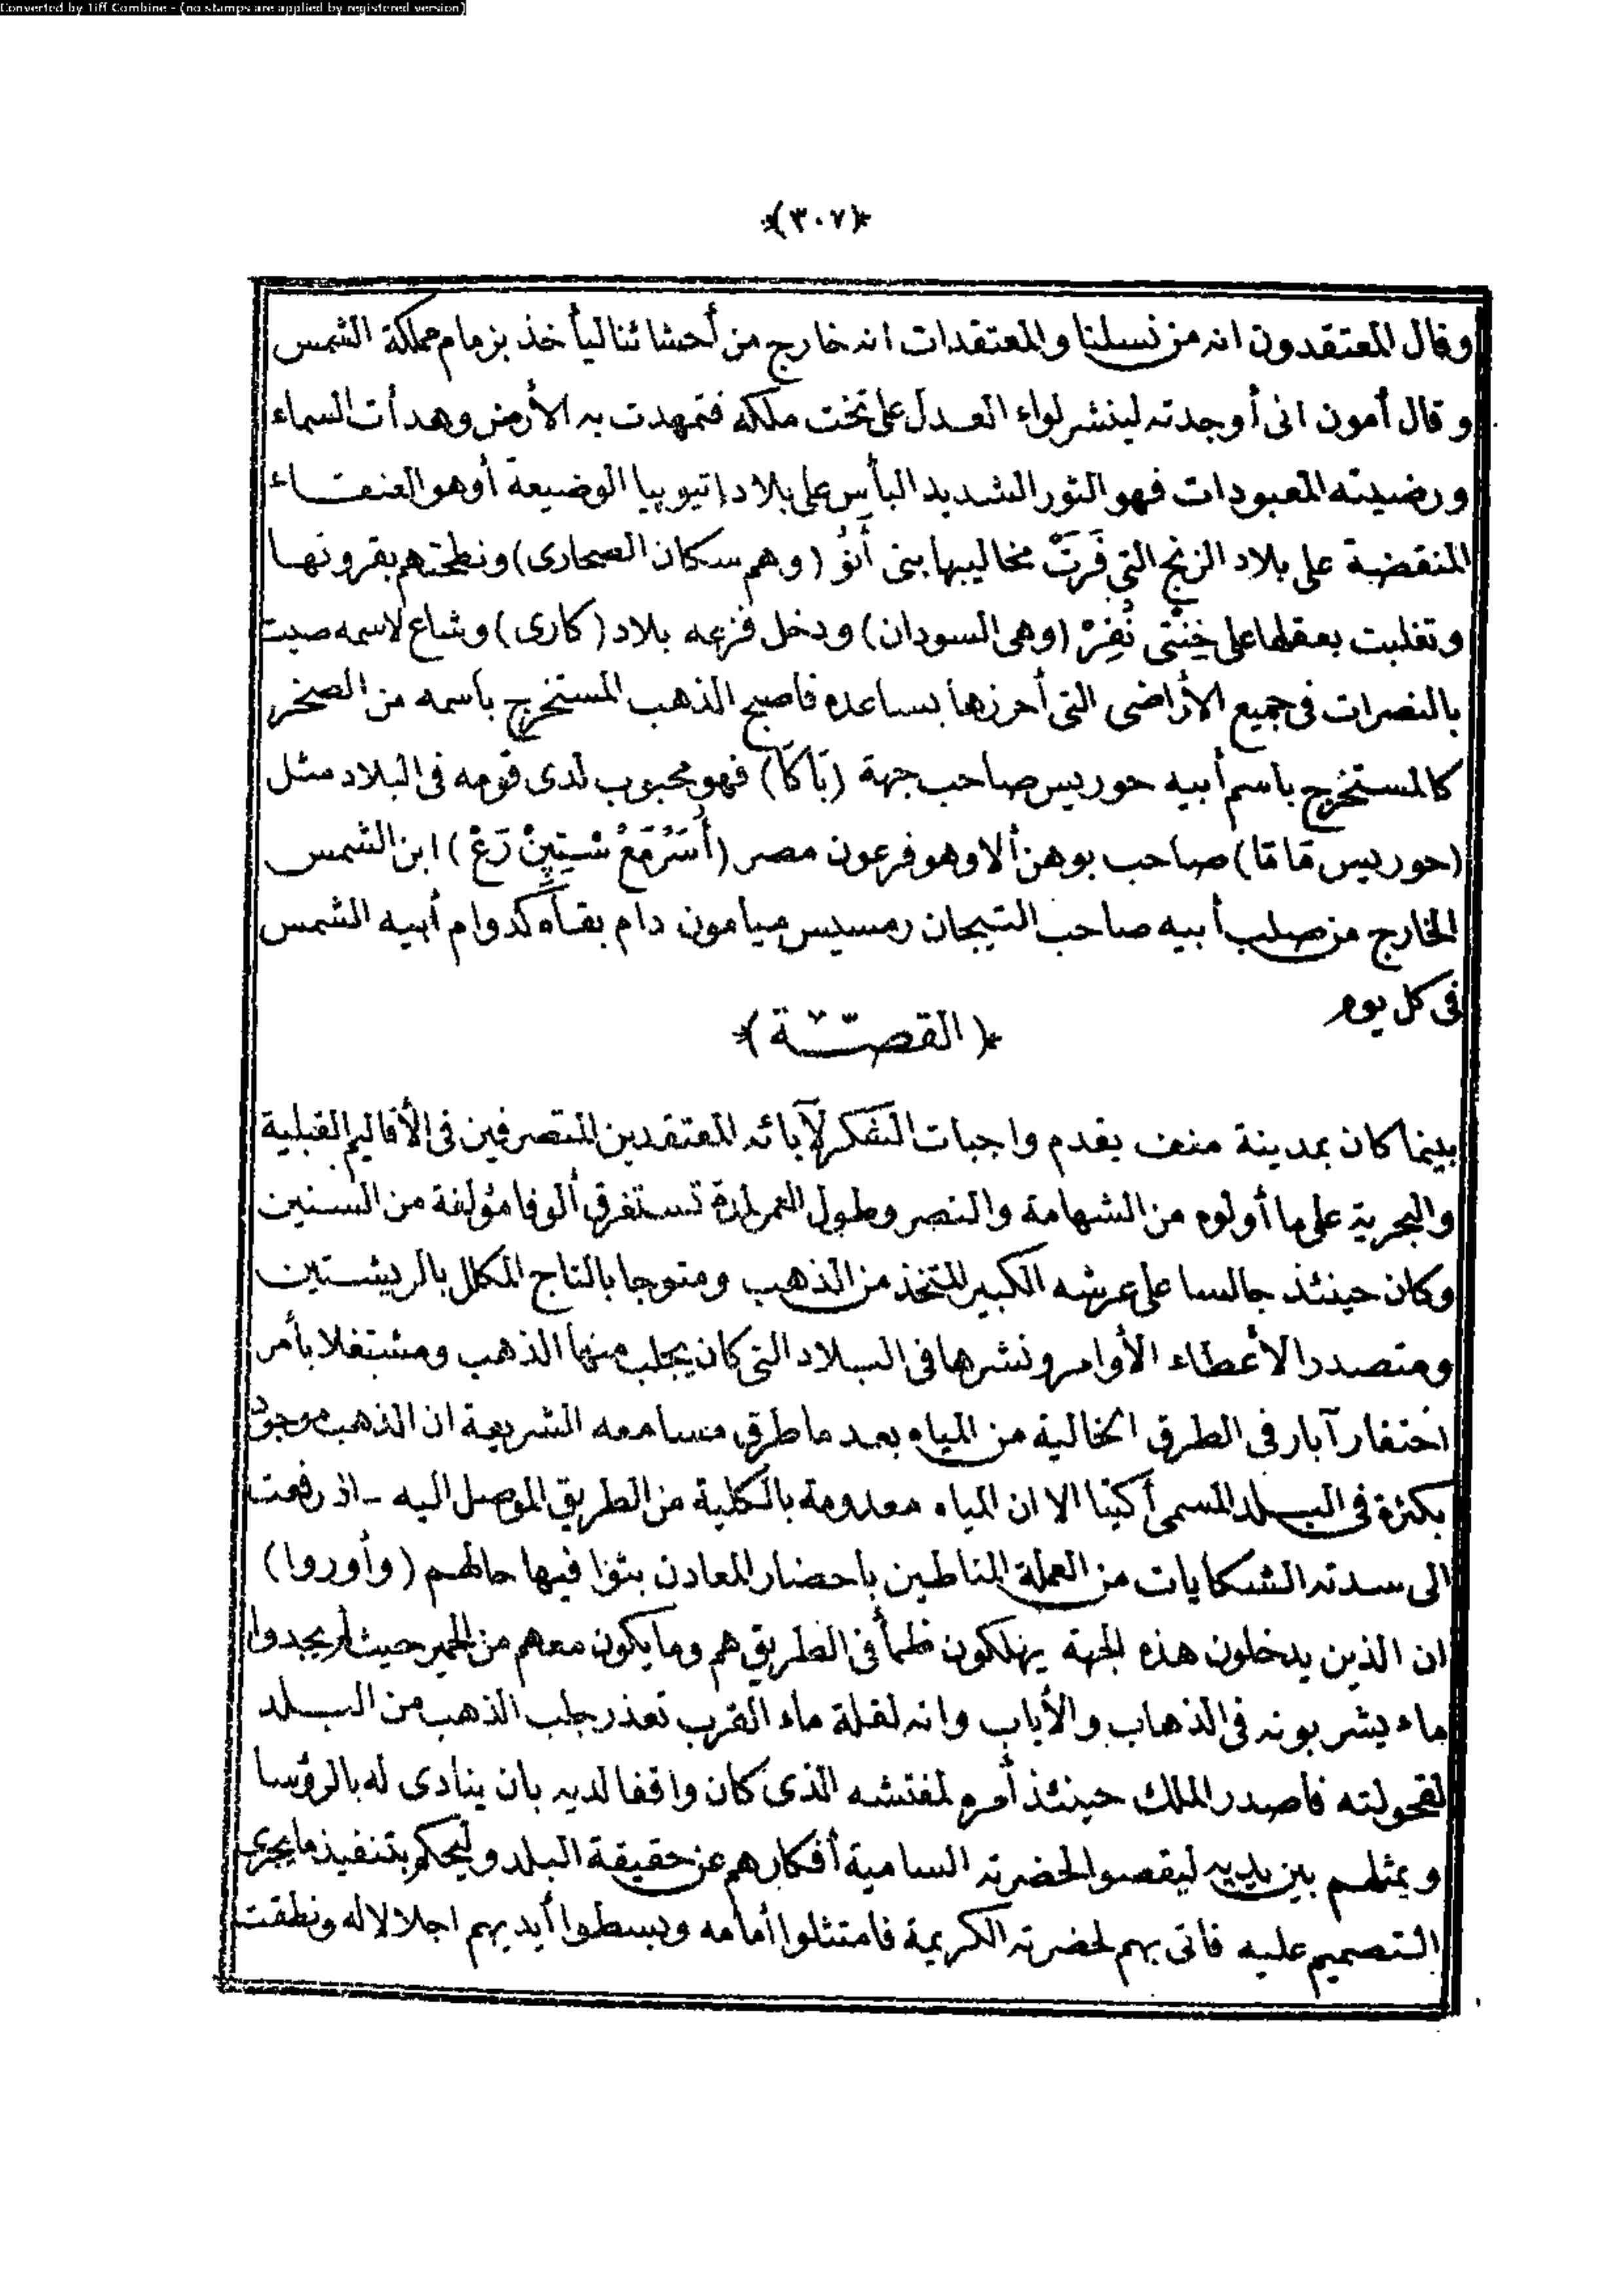 Converted by Tiff Combine - (no stamps are applied by registered version)
﴿٣٠٧﴾
وقال المعتقدون انه من نسلنا والمعتقدات انه خارج من أحشائنا ليأخذ بزمام مملكة الشمس
وقال أمون انى أوجدته لينشر لواء العدل على تخت ملكه فتمهدت به الأرض وهدأت السماء
ورضيته المعبودات فهو الثور الشديد البأس على بلاد إتيوبيا الوضيعة أوهو العنقـاء
المنقضية على بلاد الزنج التى فَرَتْ مخاليبها بنى أَنوُ (وهم سكان الصحارى) ونطحتهم بقرونها
وتغلبت بعقلها على خِنْتى نُفِرْ (وهى السودان) ودخل فزعه بلاد (كارى) وشاع لاسمه صيت
بالنصرات فى جميع الأراضى التى أحرزها بساعده فاصبح الذهب المستخرج باسمه من الصخر
كالمستخرج باسم أبيه حوريس صاحب جهة (بَاكَا) فهو محبوب لدى قومه فى البلاد مثل
(حوريس مَامَا) صاحب بوهن ألا وهو فرعون مصر (أُسَرْمَعْ سْتِپِنْ رَعْ) ابن الشمس
الخارج من صلب أبيه صاحب التيجان رمسيس ميامون دام بقاه كدوام أبيه الشمس
فى كل يوم
﴿القصّـة﴾
بينما كان بمدينة منف يقدم واجبات التشكر لآبائه المعتقدين المتصرفين فى الأقاليم القبلية
والبحرية على ما أولوه من الشهامة والنصر وطول العمر لمدة تستغرق ألوفا مؤلفة من السنين
وكان حينئذ جالسا على عرشه الكبير المتخذ من الذهب ومتوجا بالتاج المكلل بالريشـتين
ومتصدرا لأعطاء الأوامر ونشرها فى البـلاد التى كان يجلب منها الذهب ومشتغلا بأمر
احتفار آبار فى الطرق الخالية من المياه بعد ما طرق مسامعه الشريعة ان الذهب موجود
بكثرة فى البـلد المسمى أكيتا الا ان المياه معدومة بالكلية من الطريق الموصل اليه ـ اذ رفعت
الى سدته الشكايات من العملة المناطين باحضار المعادن بثوا فيها حالهم (وأوروا)
ان الذين يدخلون هذه الجهة يهلكون ظمأ فى الطريق هم وما يكون معهم من الحمير حيث لم يجدوا
ماء يشربونه فى الذهاب والأياب وانه لقلة ماء القرب تعذر جلب الذهب من البـلد
لقحولته فأصدر الملك حينئذ أمره لمفتشه الذى كان واقفا لديه بان ينادى له بالرؤسا
ويمثلهم بين يديه ليقصوا لحضرته السامية أفكارهم عن حقيقة البلد وليحكم بتنفيذ ما يجرى
التصميم عليه فاتى بهم لحضرته الكريمة فامتثلوا أمامه وبسطوا أيديهم اجلالا له ونطقت